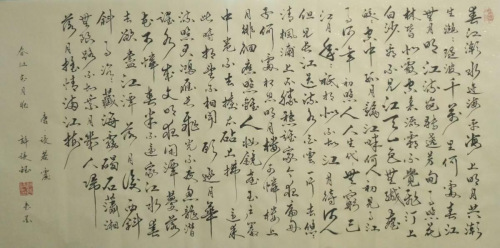 春江潮水連海平海上明月共潮
生灩灩隨波千萬里何處春江
無月明江流宛轉遶芳甸月照花
林皆似霰空裏流霜不覺飛汀上
白沙看不見江天一色無纖塵
皎皎空中孤月輪江畔何人初見月
江月何年初照人人生代代無窮已
江月年年祇相似不知江月待何人
但見長江送流水白雲一片去悠悠
青楓浦上不勝愁誰家今夜扁舟
子何處相思明月樓可憐樓上
月徘徊應照離人妝鏡臺玉戶簾
中卷不去擣衣砧上拂還來
此時相望不相聞願逐月華
流照君鴻雁長飛光不度魚龍潛
躍水成文昨夜閑潭夢落花
可憐春半不還家江水流春
去欲盡江潭落月復西斜
斜月沉沉藏海霧碣石瀟湘
無限路不知乘月幾人歸
落月搖情滿江樹
唐張若虛
春江花月夜